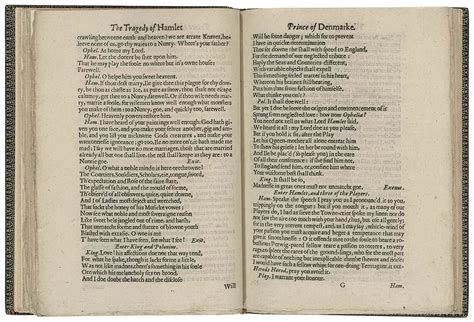 The Tragedy of Hamlet
crawling betweene earth and heauen? we are arrant Knaues, be-
leeue none of vs, go thy waies to a Nunry. Where's your father?
Ophel. At home my Lord.
Ham. Let the dores be shut vpon him,
That he may play the foole no where but in's owne house:
Farewell.
Ophel. O helpe him you sweet heauens.
Ham. If thou dost marry, Ile giue thee this plague for thy dow-
ry, be thou as chast as Ice, as pure as snow, thou shalt not escape
calumny; get thee to a Nunry, farewell. Or if thou wilt needes
marry, marry a foole, for wisemen know well enough what monsters
you make of them: to a Nunry, goe, and quickly too, farewell.
Ophel. Heauenly powers restore him.
Ham. I haue heard of your paintings well enough: God hath gi-
uen you one face, and you make your selues another, gig and am-
ble, and you nickname Gods creatures, and make your
wantonnesse ignorance; goe to, Ile no more on't, it hath made
me mad: I say we will haue no moe marriages, those that are married
already all but one shall liue, the rest shall keepe as they are: to a
Nunry go. Exit.
Ophel. O what a noble mind is heere orethrowne!
The Courtiers, Souldiers, Schollers, eye, tongue, sword,
Th'expectation and Rose of the faire state,
The glasse of fashion, and the mould of forme,
Th'obseru'd of all obseruers, quite, quite downe,
And I of Ladies most deiect and wretched,
That suckt the honey of his Musickt vowes;
Now see what noble and most soueraigne reason
Like sweet bells iangled out of time, and harsh,
That vnmatcht forme and stature of blowne youth
Blasted with extasie. O woe is mee
T'haue seene what I haue seene, see what I see. Exit.
Enter King and Polonius.
King. Loue? his affections doe not that way tend,
For what he spake, though it lackt forme a little,
Was not like madnes, there's something in his soule
Ore which his melancholy sits on brood,
And I doe doubt the hatch and the disclose
Will
Prince of Denmarke.
Will be some danger; which for to preuent
I haue in quicke determination
Thus set downe: he shall with speed to England,
For the demand of our neglected tribute:
Haply the Seas and Countries different,
With variable obiects shall expell
This something setled matter in his heart,
Whereon his braines still beating
Puts him thus from fashion of himselfe.
What thinke you on't?
Pol. It shall doe well:
But yet I doe beleeue the origin and commencement of it
Sprung from neglected loue: how now Ophelia?
You need not tell vs what Lord Hamlet said,
We heard it all: my Lord doe as you please,
But if you hold it fit, after the Play
Let his Queen-mother all alone intreate him
To shew his griefe, let her be round with him,
And Ile be plac'd (so please you) in the eare
Of all their conference: if she find him not,
To England send him: or confine him where
Your wisdome best shall thinke.
King. It shall be so,
Madnesse in great ones must not vnmatcht goe. Exeunt.
Enter Hamlet, and three of the Players.
Ham. Speake the speech I pray you as I pronounc'd it to you,
trippingly on the tongue: but if you mouth it, as many of our
Players do, I had as liue the Towne-cryer spoke my lines: nor do
not saw the ayre too much with your hand thus, but vse all gently:
for in the very torrent, tempest, and as I may say, whirle-wind of
your passion you must acquire and beget a temperance that may
giue it smoothnesse. O it offends me to the soule to heare a ro-
bustious Perwig-pated fellow teare a passion to totters, to very
rags, to spleet the eares of the groundlings, who for the most
part are capable of nothing but inexplicable dumbe shewes, and
noise: I would haue such a fellow whipt for ore-doing Termagant, it out
Herods Herod, pray you auoyd it.
Play. I warrant your honour.
G Ham.